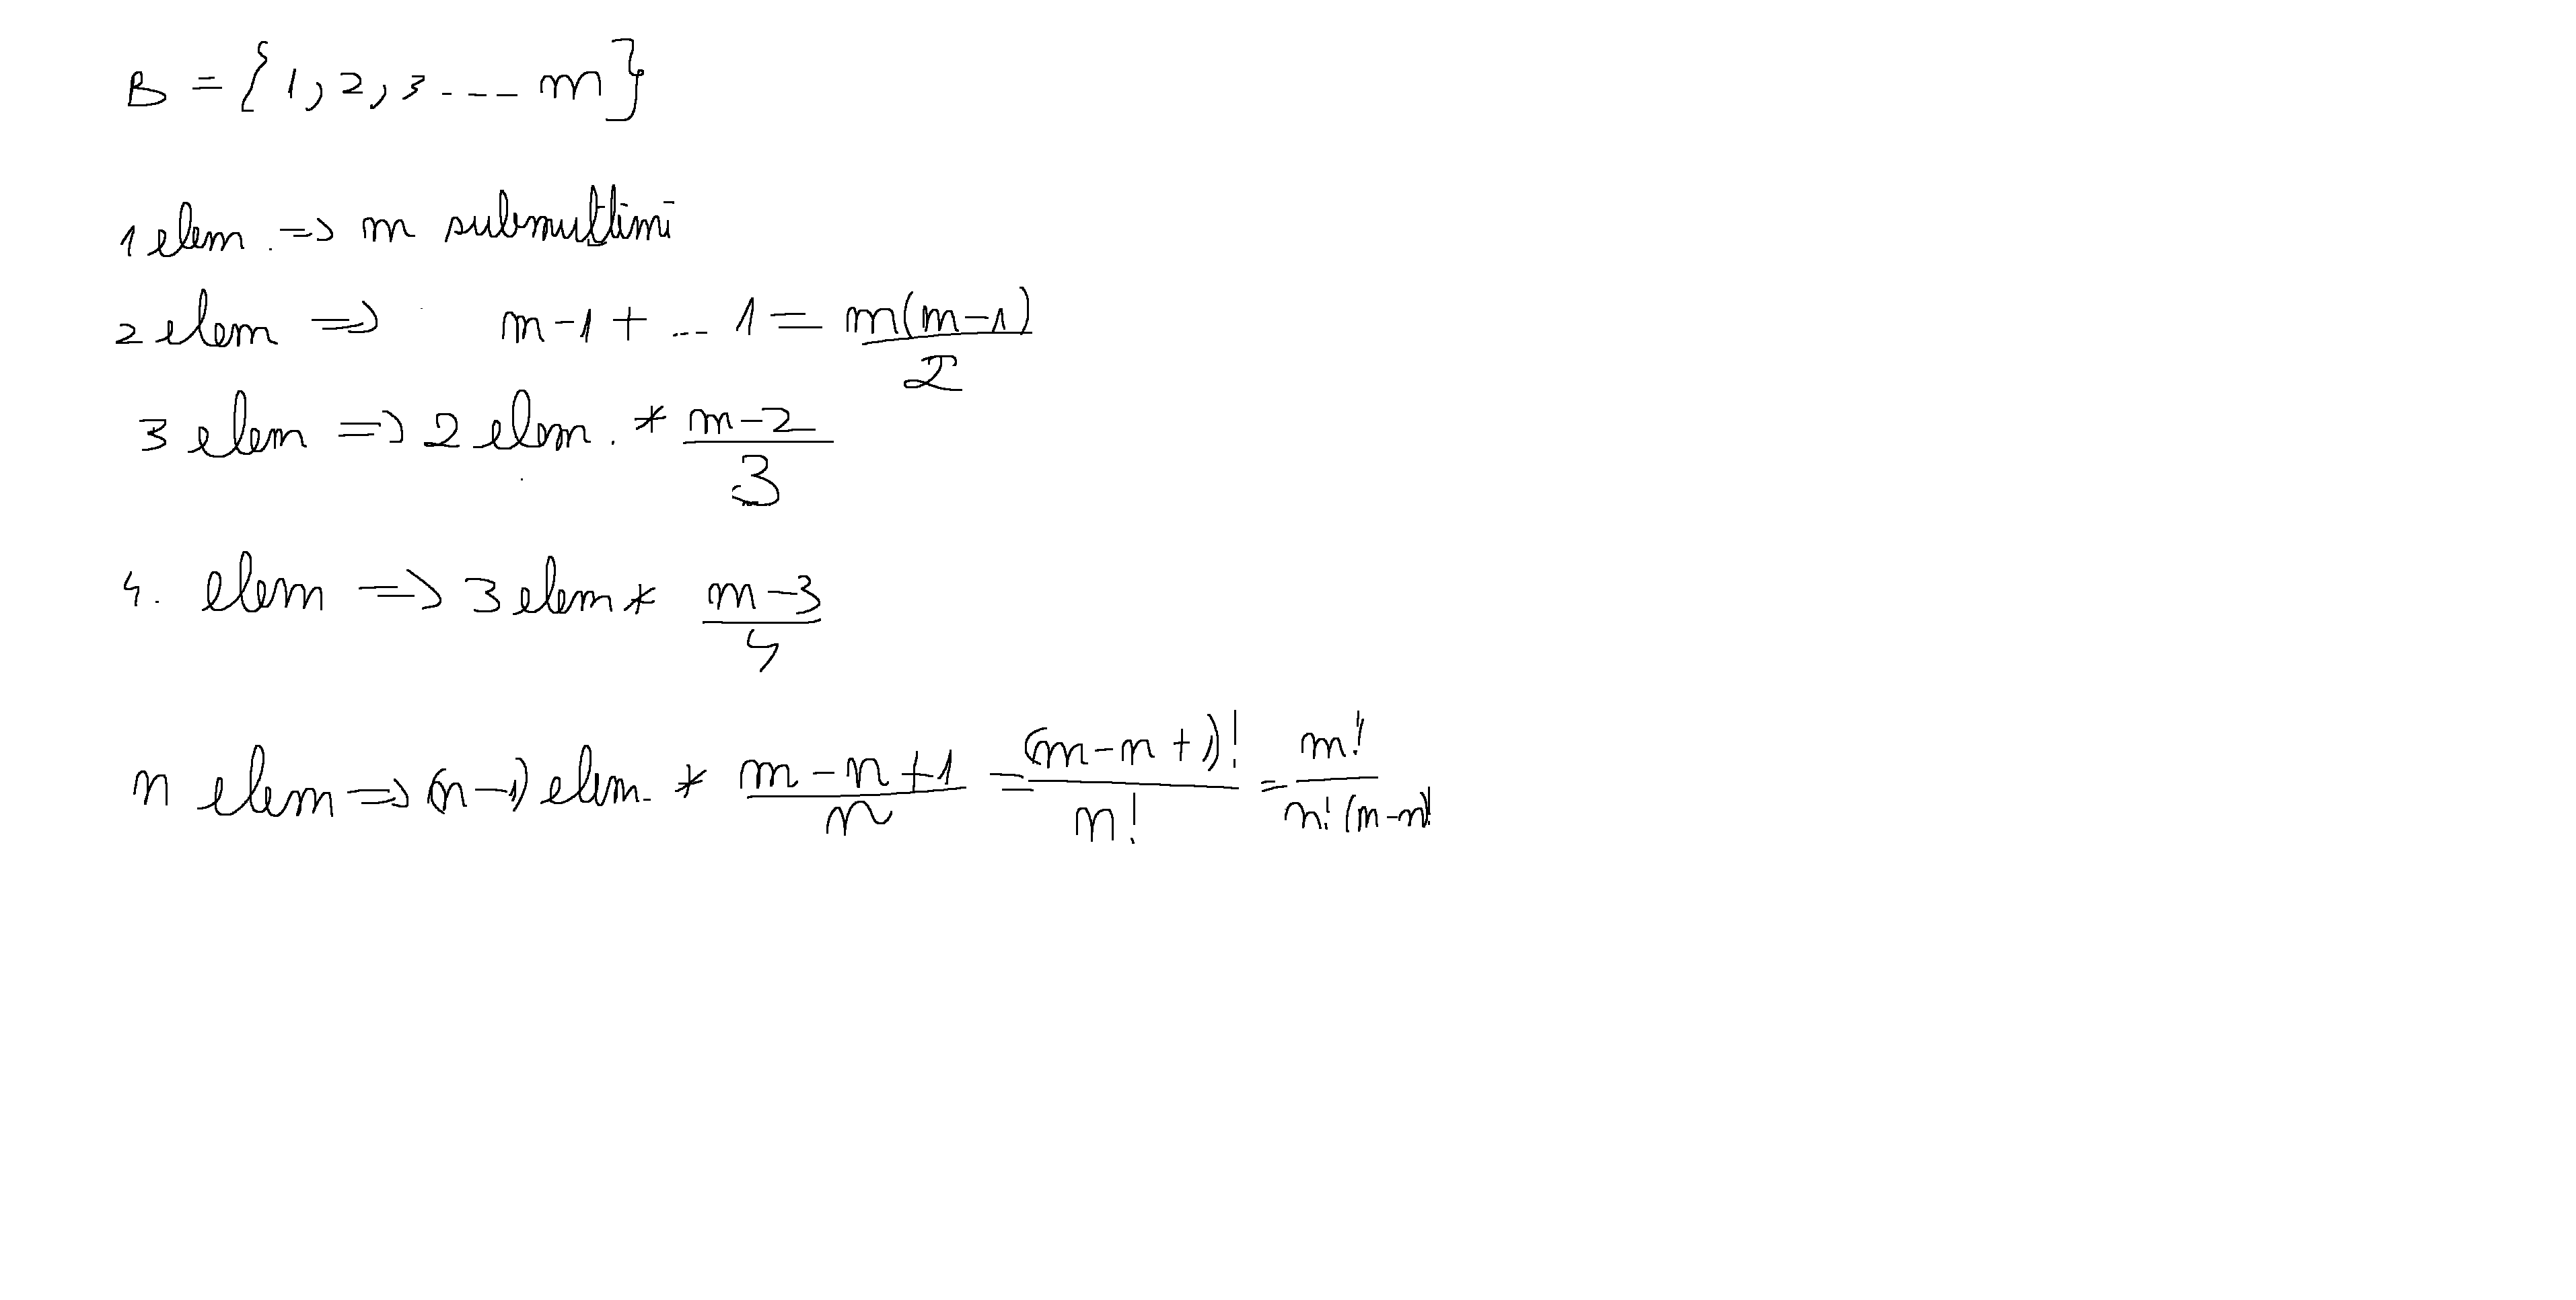 B = {1, 2, 3 ---- m}
1 elem. => m submultimi
2 elem => m-1 + ... 1 = m(m-1)/2
3 elem => 2 elem. * (m-2)/3
4. elem => 3 elem * (m-3)/4
n elem => (n-1) elem. * (m-n+1)/n = (m-n+1)!/n! = m!/n!(m-n)!